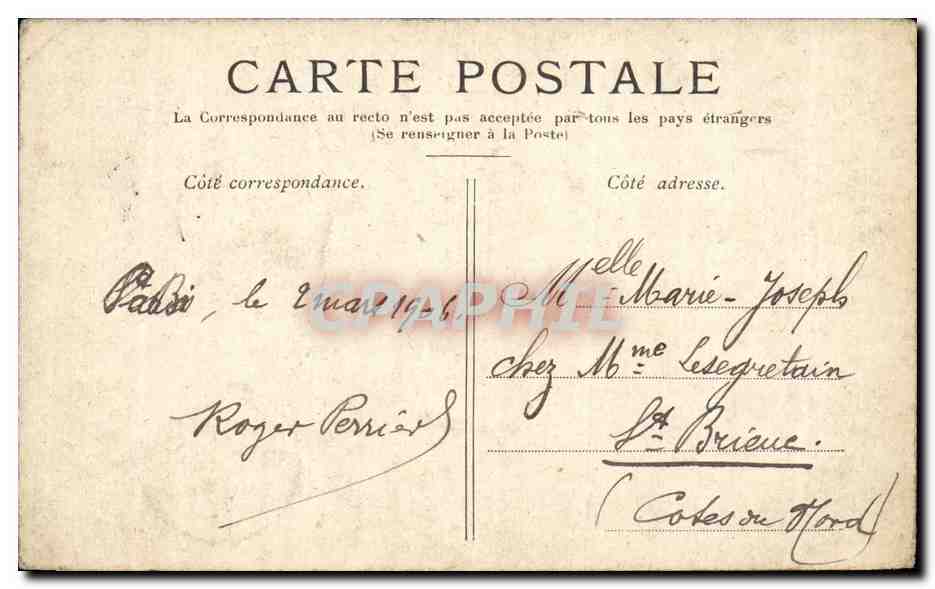 CARTE POSTALE
La Correspondance au recto n'est pas acceptée par tous les pays étrangers
(Se renseigner à la Poste)
Côté correspondance.
Côté adresse.
le 2 mars 1906.
Roger Perrier
Melle Marie-Joseph
chez Mme Lesegretain
St Brieuc.
(Cotes du Nord)
CPAPHIL